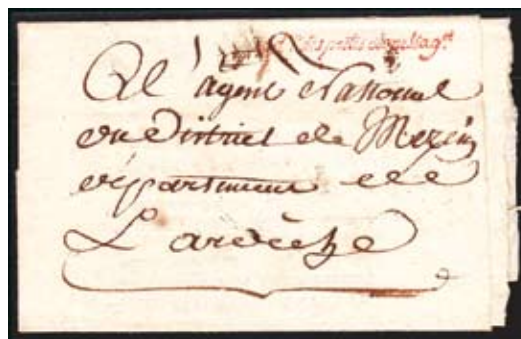 A l'agent National
du District de Mezin
département de
L'ardèche